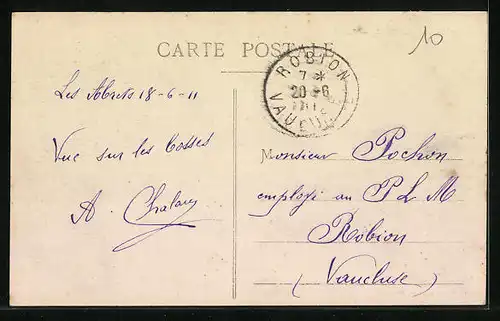 CARTE POSTALE
10
ROBION
7 *
20 -6
VAUCLUSE
Les Abrets 18-6-11
Vue sur les Cosses
A. Chalary
Monsieur Pochon
employé au P L M
Robion
(Vaucluse)